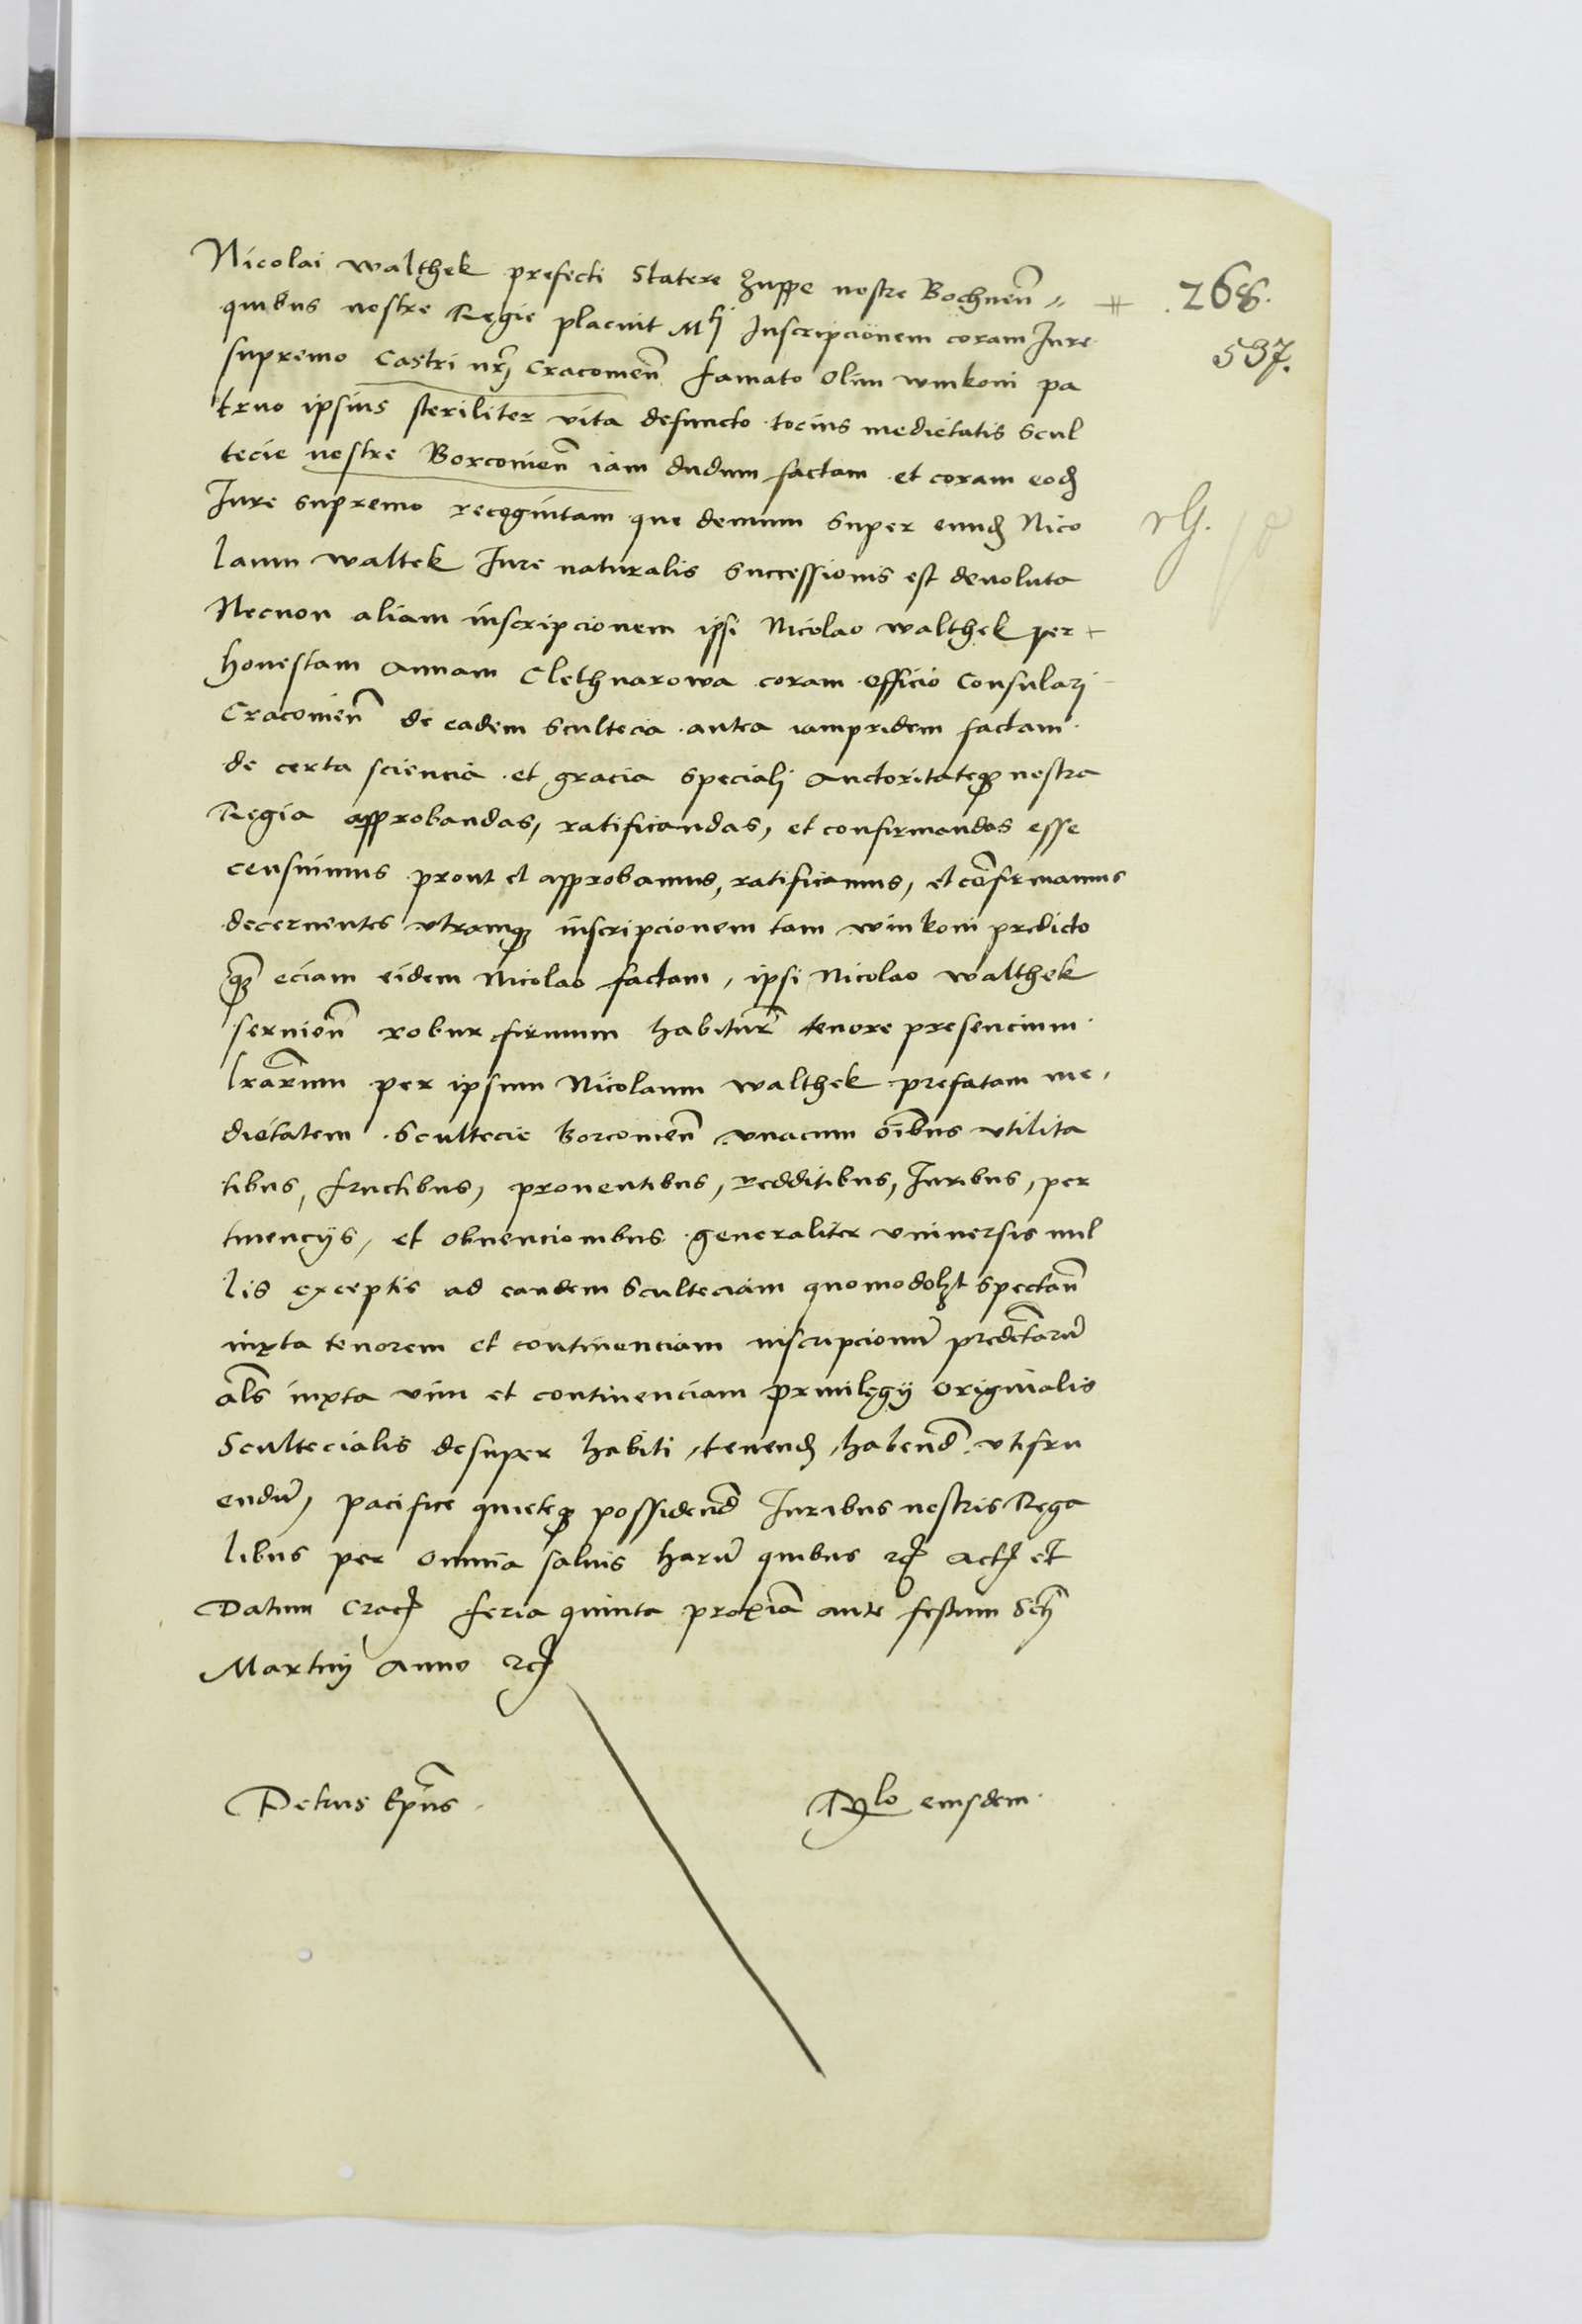 Nicolai walthek prefecti Statere Zuppe nostre Bochnen̄
268.
quibus nostre Regie placuit Mti Inscripcionem coram Iure
537.
supremo Castri nr̄j Cracouien̄ famato olim winkoni pa
truo ipsius steriliter vita defuncto tocius medietatis scul
tecie nostre Borcouien̄ iam dudum factam et coram eod
Iure supremo recognitam que demum super eund Nico
laum waltek Iure naturalis successionis est deuoluta
Necnon aliam inscripcionem ipsi Nicolao walthek per
honestam Annam Clethnarowa coram officio Consularj
Cracouien̄ de eadem scultecia antea iampridem factam
de certa sciencia et gracia specialj auctoritateq nostra
Regia approbandas, ratificandas, et confirmandas esse
censuimus prout et approbamus, ratificamus, et cōfirmamus
decernentes vtramq inscripcionem tam winkoni predicto
q̄ eciam eidem Nicolao factam, ipsi Nicolao walthek
seruien̄ robur firmum habitur̄ tenore presencium
lrārum per ipsum Nicolaum walthek prefatam me,
dietatem scultecie Borcouien̄ vnacum oībus vtilita
tibus, fructibus, prouentibus, redditibus, Iuribus, per
tinencijs, et obuencionibus generaliter vniuersis nul
lis exceptis ad eandem sculteciam quomodolzt spectan̄
iuxta tenorem et continenciam inscripcionū predictarū
als̄ iuxta vim et continenciam priuilegij originalis
Scultecialis desuper habiti, tenend, habend̄ vtifru
endū, pacifice quieteq possidend̄ Iuribus nostris Rega
libus per omnia saluis harū quibus rc̄ Act et
Datum Crac feria quinta proxīa ante festum Sctj
Martinj Anno rc̄
Petrus Ep̄us
Rlo eiusdem